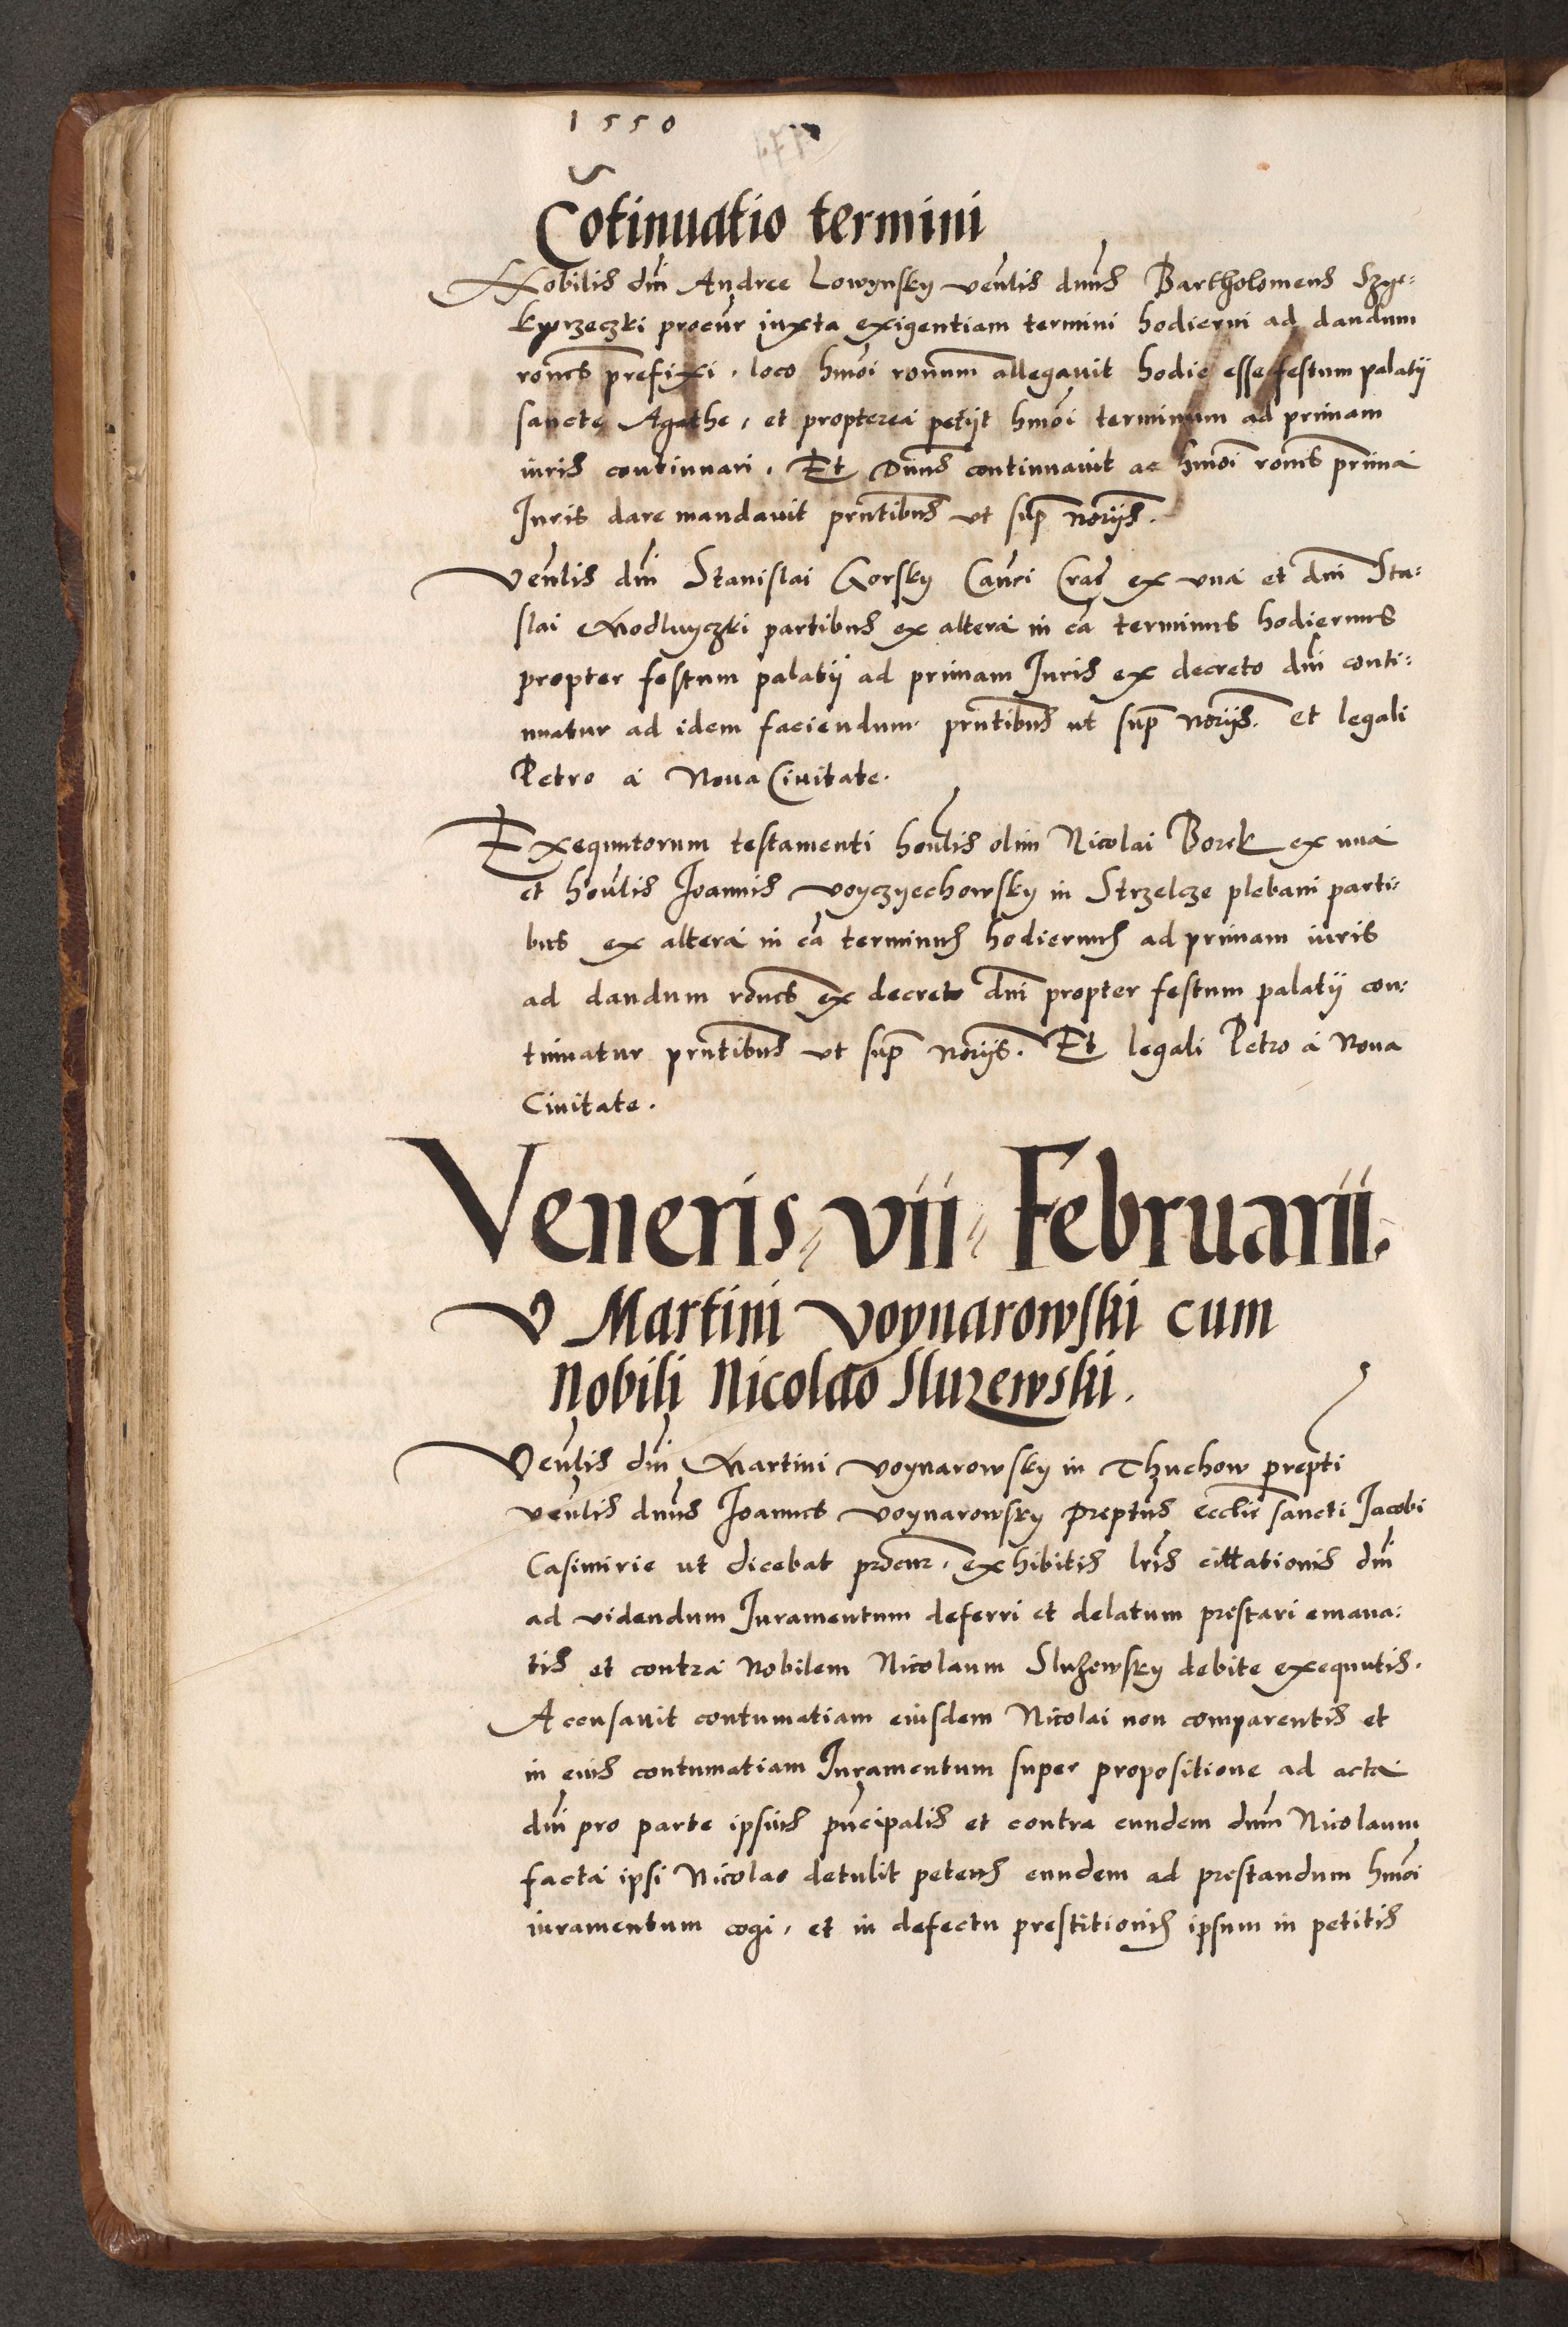 1550
Cōtinuatio termini
Nobilis dni Andree Lowynsky venlis dnus Bartholomeus Szye⸗
kyrzeczki procur juxta exigentiam termini hodierni ad dandum
rones prefixi. loco hmoi ronum allegauit hodie esse festum palatij
sancte Agathe, et propterea petijt hmoi terminum ad primam
iuris continuari. Et Dnus continuauit ac hmoi rones prima
Juris dare mandauit pntibus vt sup noriis.
Venlis dni Stanislai Gorsky Canci Crac ex vna et dni Sta⸗
slai Modlnyczki partibus ex altera in ca terminus hodiernus
propter festum palatij ad primam Juris ex decreto dni conti⸗
nuatur ad idem faciendum. pntibus ut sup noriis. et legali
Petro a Noua Ciuitate.
Exequutorum testamenti honlis olim Nicolai Borek ex una
et honlis Joannis Voyczyechowsky in Strzelcze plebani parti⸗
bus ex altera in ca terminus hodiernus ad primam iuris
ad dandum rones ex decreto dni propter festum palatij con⸗
tinuatur pntibus vt sup noriis. Et legali Petro a Noua
Ciuitate.
Veneris vii Februarii.
V Martini Voynarowski cum
Nobili Nicolao Sluzewski.
Venlis dni Martini Voynarowsky in Thuchow prepti
venlis dnus Joannes Voynarowsky preptus ecclie sancti Jacobi
Casimirie ut dicebat procur. exhibitis lris cittationis dni
ad videndum Juramentum deferri et delatum prestari emana⸗
tis et contra Nobilem Nicolaum Sluzowsky debite exequutis.
Accusauit contumatiam eiusdem Nicolai non comparentis et
in eius contumatiam Juramentum super propositione ad acta
dni pro parte ipsius pncipalis et contra eundem dnm Nicolaum
facta ipsi Nicolao detulit petens eundem ad prestandum hmoi
iuramentum cogi, et in defectu prestitionis ipsum in petitis